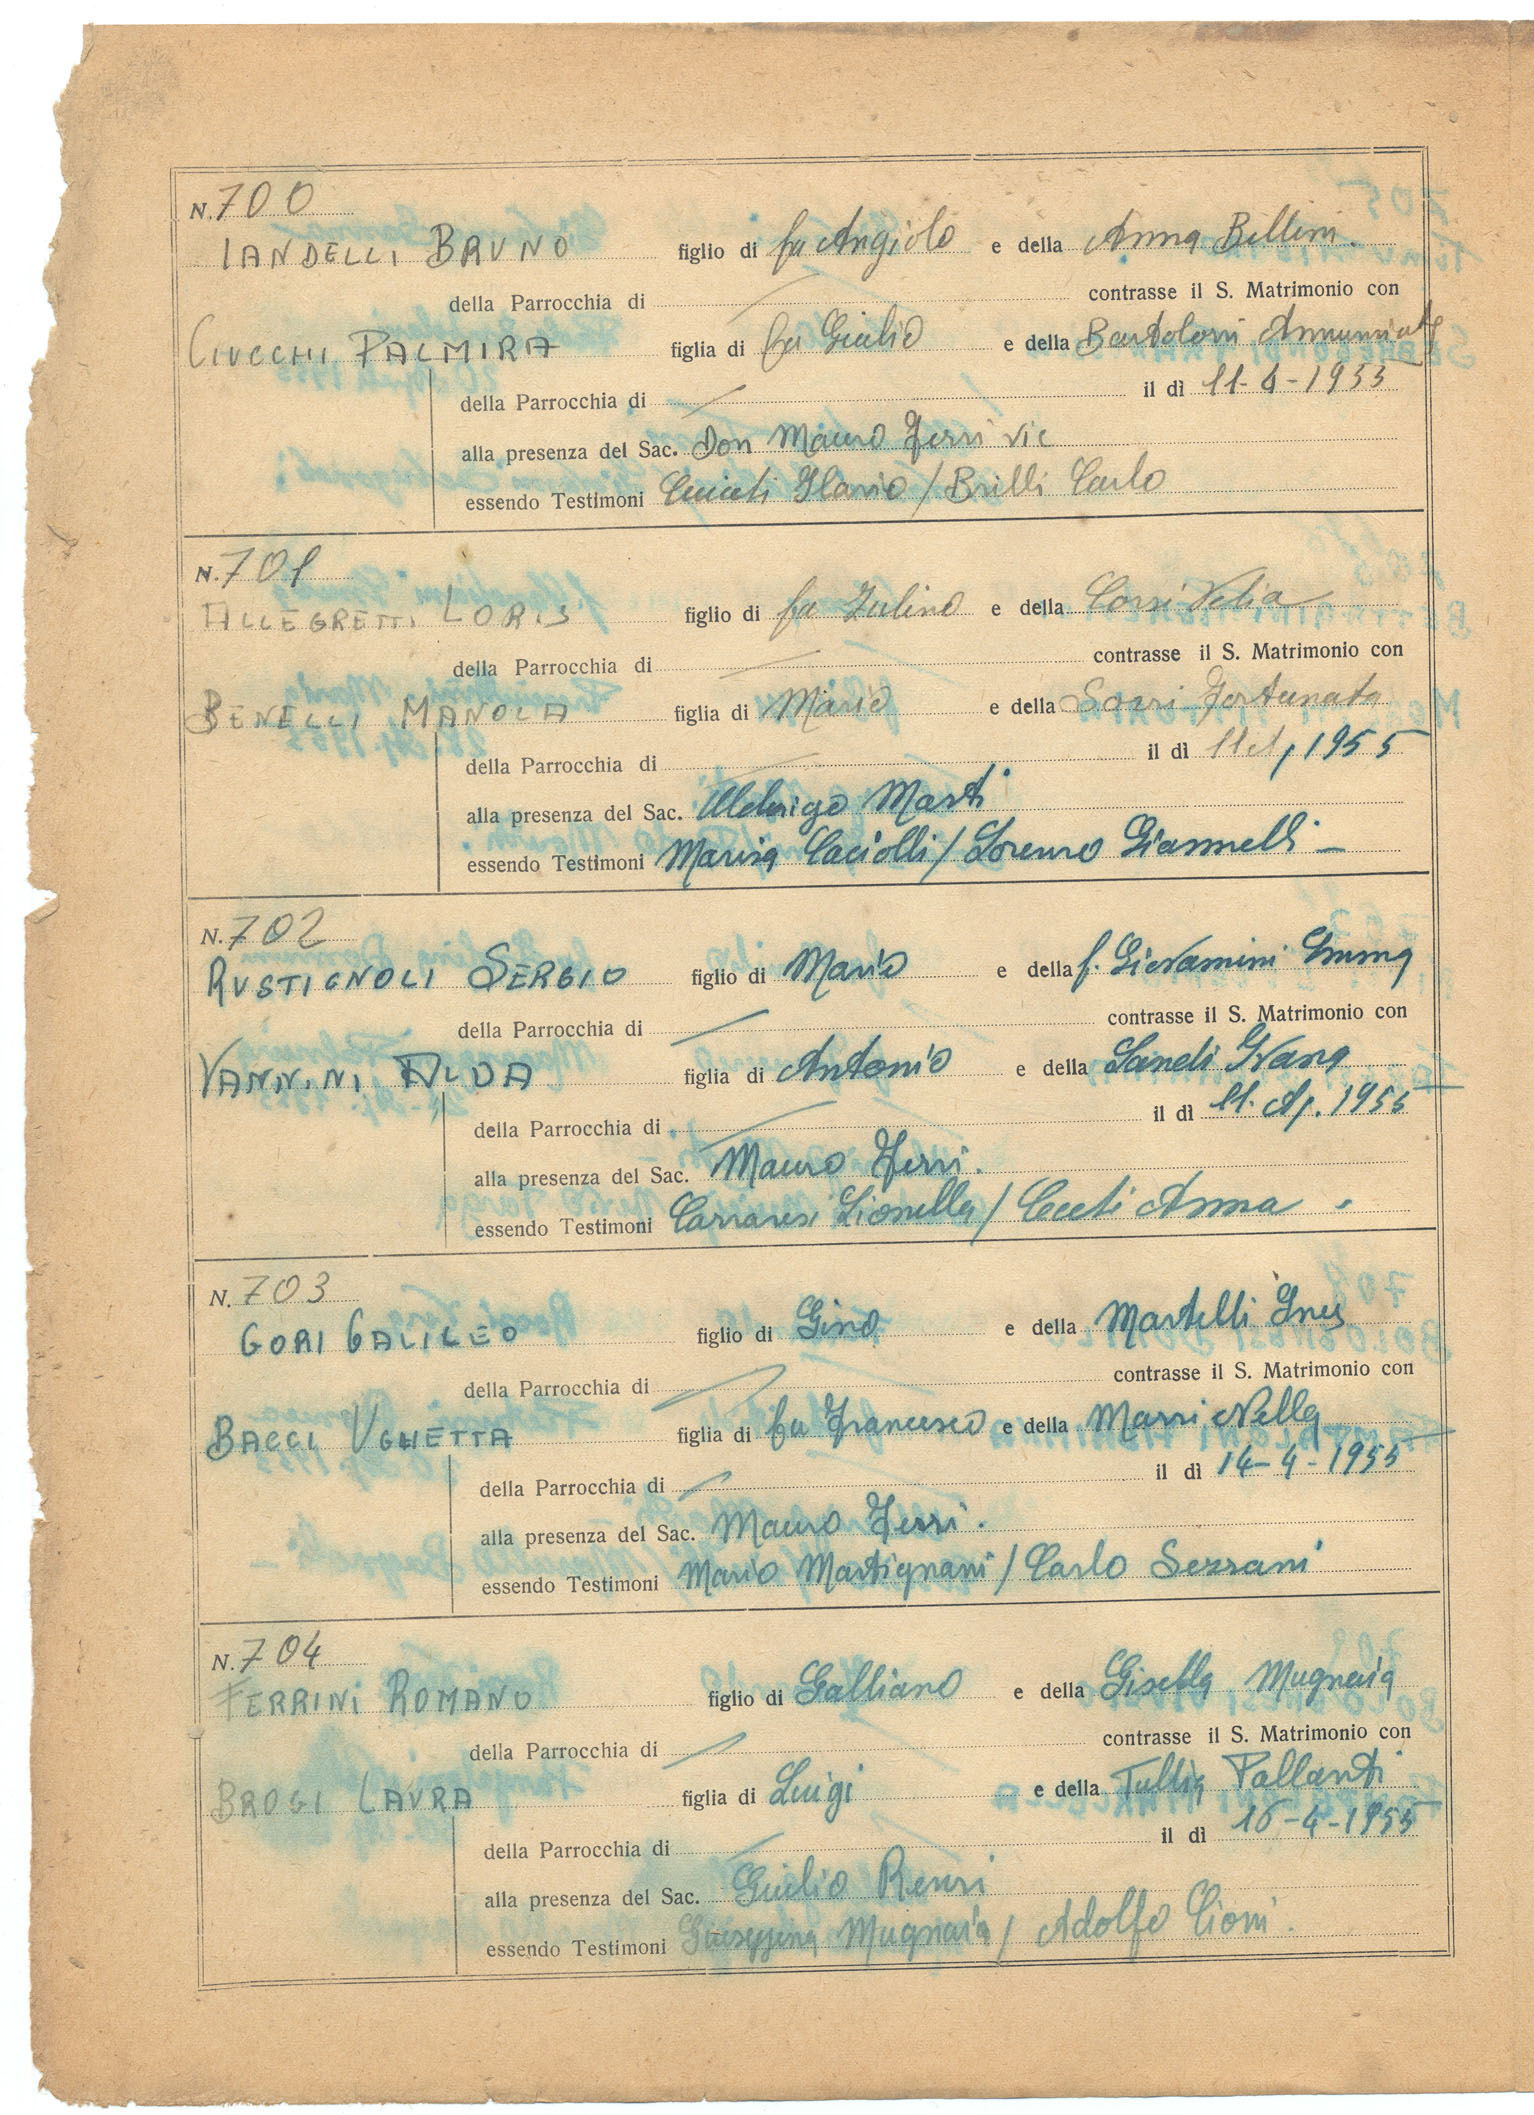 N. 700
IANDELLI BRUNO figlio di fu Angiolo e della Anna Bellini.
della Parrocchia di contrasse il S. Matrimonio con
CIUCCHI PALMIRA figlia di fu Giulio e della Bartoloni Annunziata
della Parrocchia di il dì 11-4-1955
alla presenza del Sac. Don Mauro Ferri vic
essendo Testimoni Ilario / Brilli Carlo
N. 701
ALLEGRETTI LORIS figlio di fu Zulino e della Corsi Velia
della Parrocchia di contrasse il S. Matrimonio con
BENELLI MANOLA figlia di Mario e della Sarri Fortunata
della Parrocchia di il dì 1955
alla presenza del Sac. Alderigo Masti
essendo Testimoni Marisa Caciolli / Lorenzo Giannelli –
N. 702
RUSTIGNOLI SERGIO figlio di Mario e della f. Giovannini Emma
della Parrocchia di contrasse il S. Matrimonio con
VANNINI ALDA figlia di Antonio e della Landi Ivana
della Parrocchia di il dì 11. Ap. 1955
alla presenza del Sac. Mauro Ferri.
essendo Testimoni Carraresi Lionella / Anna
N. 703
GORI GALILEO figlio di Gino e della Martelli Ines
della Parrocchia di contrasse il S. Matrimonio con
BACCI UGHETTA figlia di fu Francesco e della Masri Nella
della Parrocchia di il dì 14-4-1955
alla presenza del Sac. Mauro Ferri.
essendo Testimoni Mario Martignani / Carlo Sezzani
N. 704
FERRINI ROMANO figlio di Galliano e della Gisella Mugnaia
della Parrocchia di contrasse il S. Matrimonio con
BROGI LAURA figlia di Luigi e della Tullia Pallanti
della Parrocchia di il dì 16-4-1955
alla presenza del Sac. Giulio Renzi
essendo Testimoni Giuseppina Mugnaia / Adolfo Cioni.